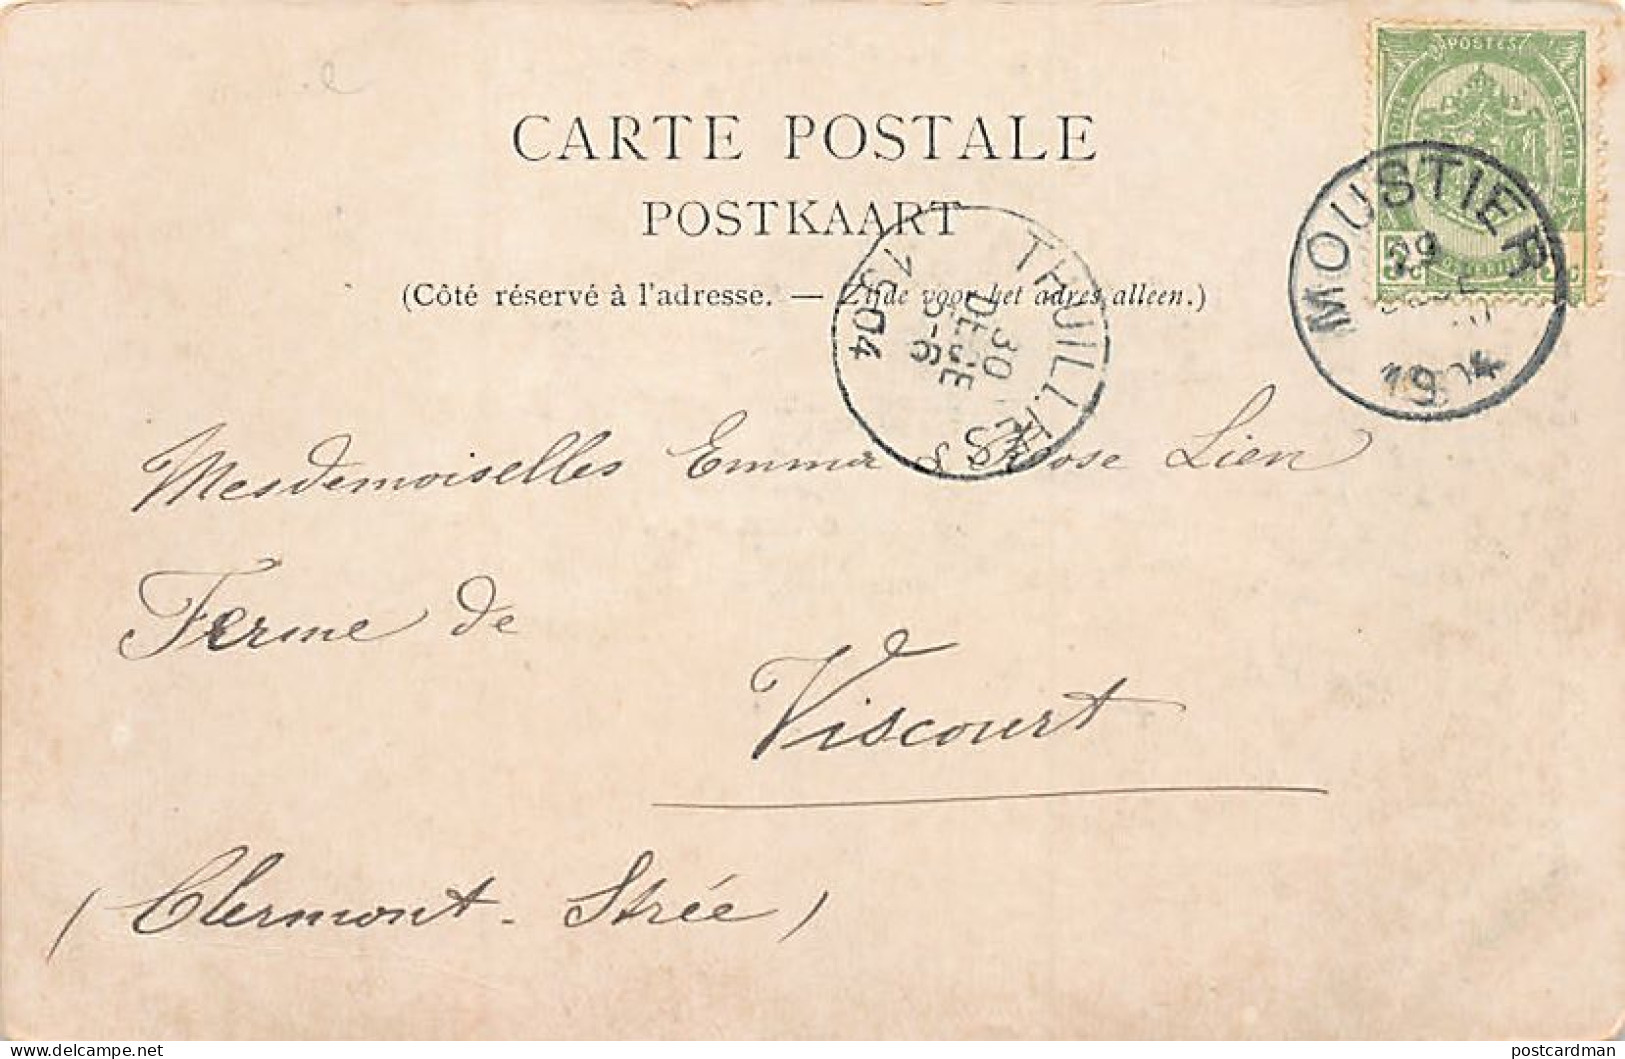 CARTE POSTALE
POSTKAART
(Côté réservé à l'adresse. — Zijde voor het adres alleen.)
POSTES
BELGIQUE
MOUSTIER
29
1904
THUILLIES
30
DECE
5-6
1904
Mesdemoiselles Emma & Rose Lien
Ferme de
Viscourt
(Clermont - Strée)
delcampe.net
postcardman